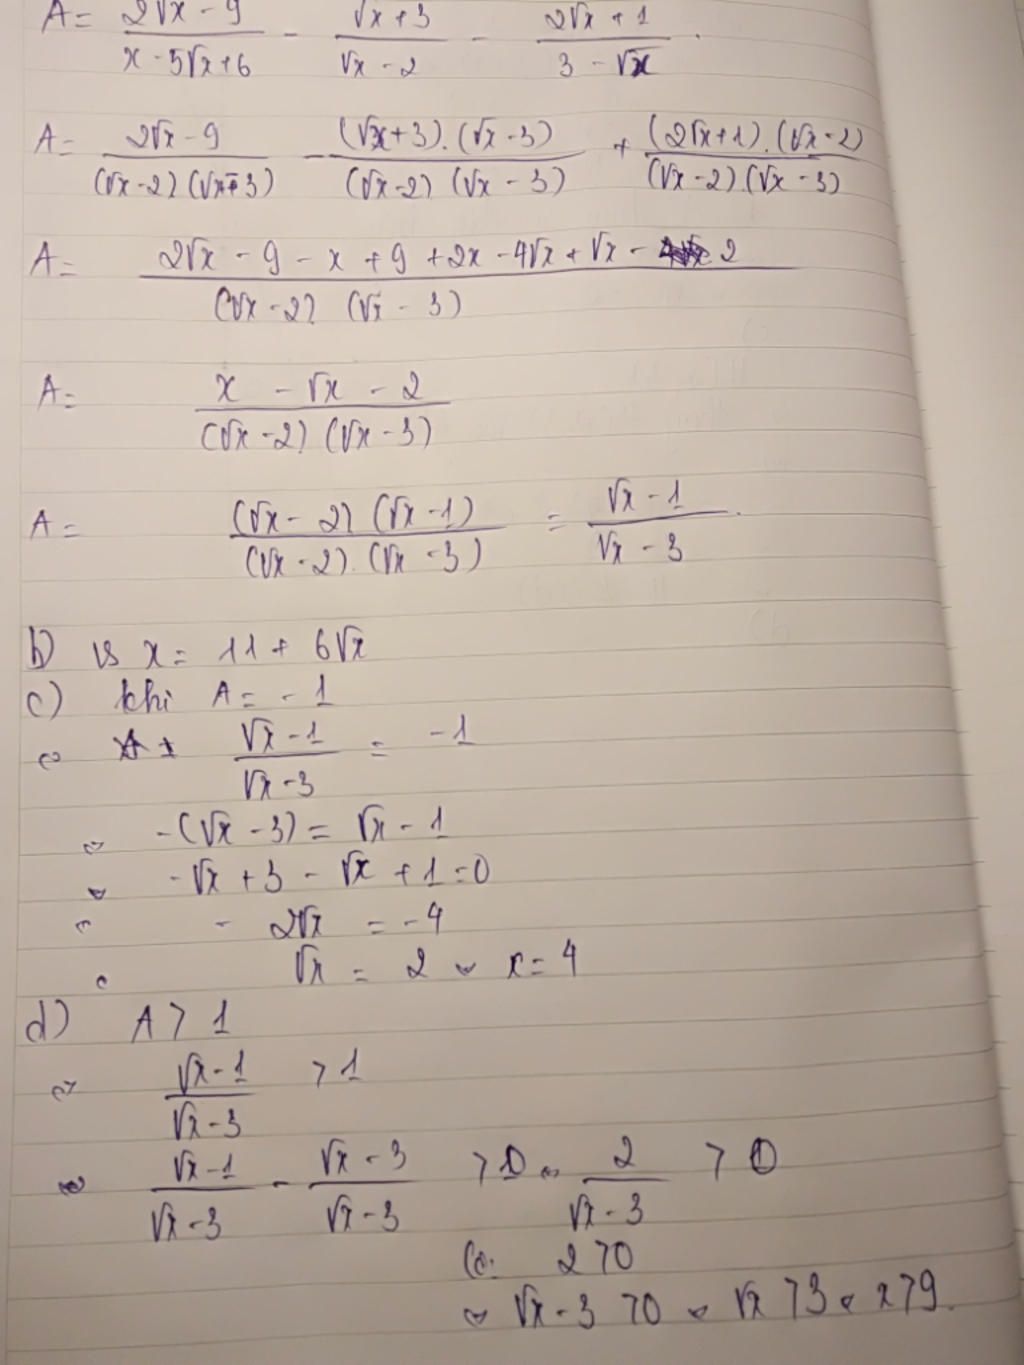 A = (2√x - 9)/(x - 5√x + 6) - (√x + 3)/(√x - 2) - (2√x + 1)/(3 - √x).
A = (2√x - 9)/((√x - 2)(√x - 3)) - ((√x + 3).(√x - 3))/((√x - 2)(√x - 3)) + ((2√x + 1).(√x - 2))/((√x - 2).(√x - 3))
A = (2√x - 9 - x + 9 + 2x - 4√x + √x - 2)/((√x - 2)(√x - 3))
A = (x - √x - 2)/((√x - 2)(√x - 3))
A = ((√x - 2)(√x - 1))/((√x - 2).(√x - 3)) = (√x - 1)/(√x - 3).
b) x = 11 + 6√x
c) khi A = - 1
⇔ (√x - 1)/(√x - 3) = - 1
⇔ -(√x - 3) = √x - 1
⇔ -√x + 3 - √x + 1 = 0
⇔ - 2√x = - 4
⇔ √x = 2 ⇔ x = 4
d) A > 1
⇔ (√x - 1)/(√x - 3) > 1
⇔ (√x - 1)/(√x - 3) - (√x - 3)/(√x - 3) > 0 ⇔ 2/(√x - 3) > 0
Có: 2 > 0
⇔ √x - 3 > 0 ⇔ √x > 3 ⇔ x > 9.